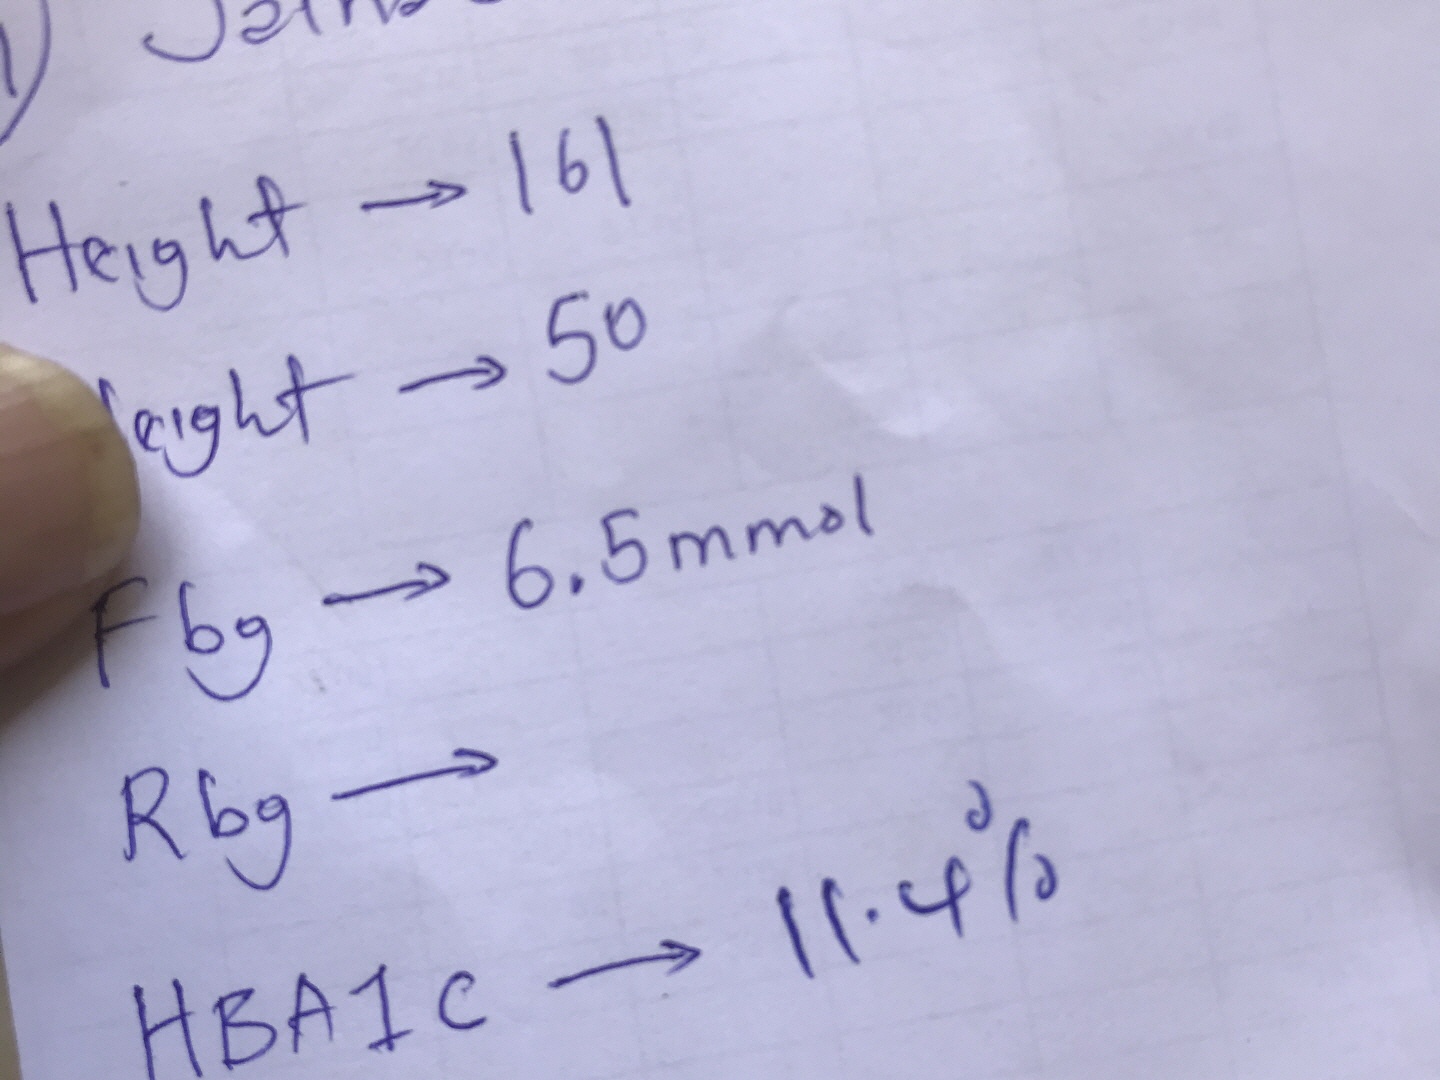 1)
Height → 161
eight → 50
Fbg → 6.5mmol
Rbg →
HBA1c → 11.4%